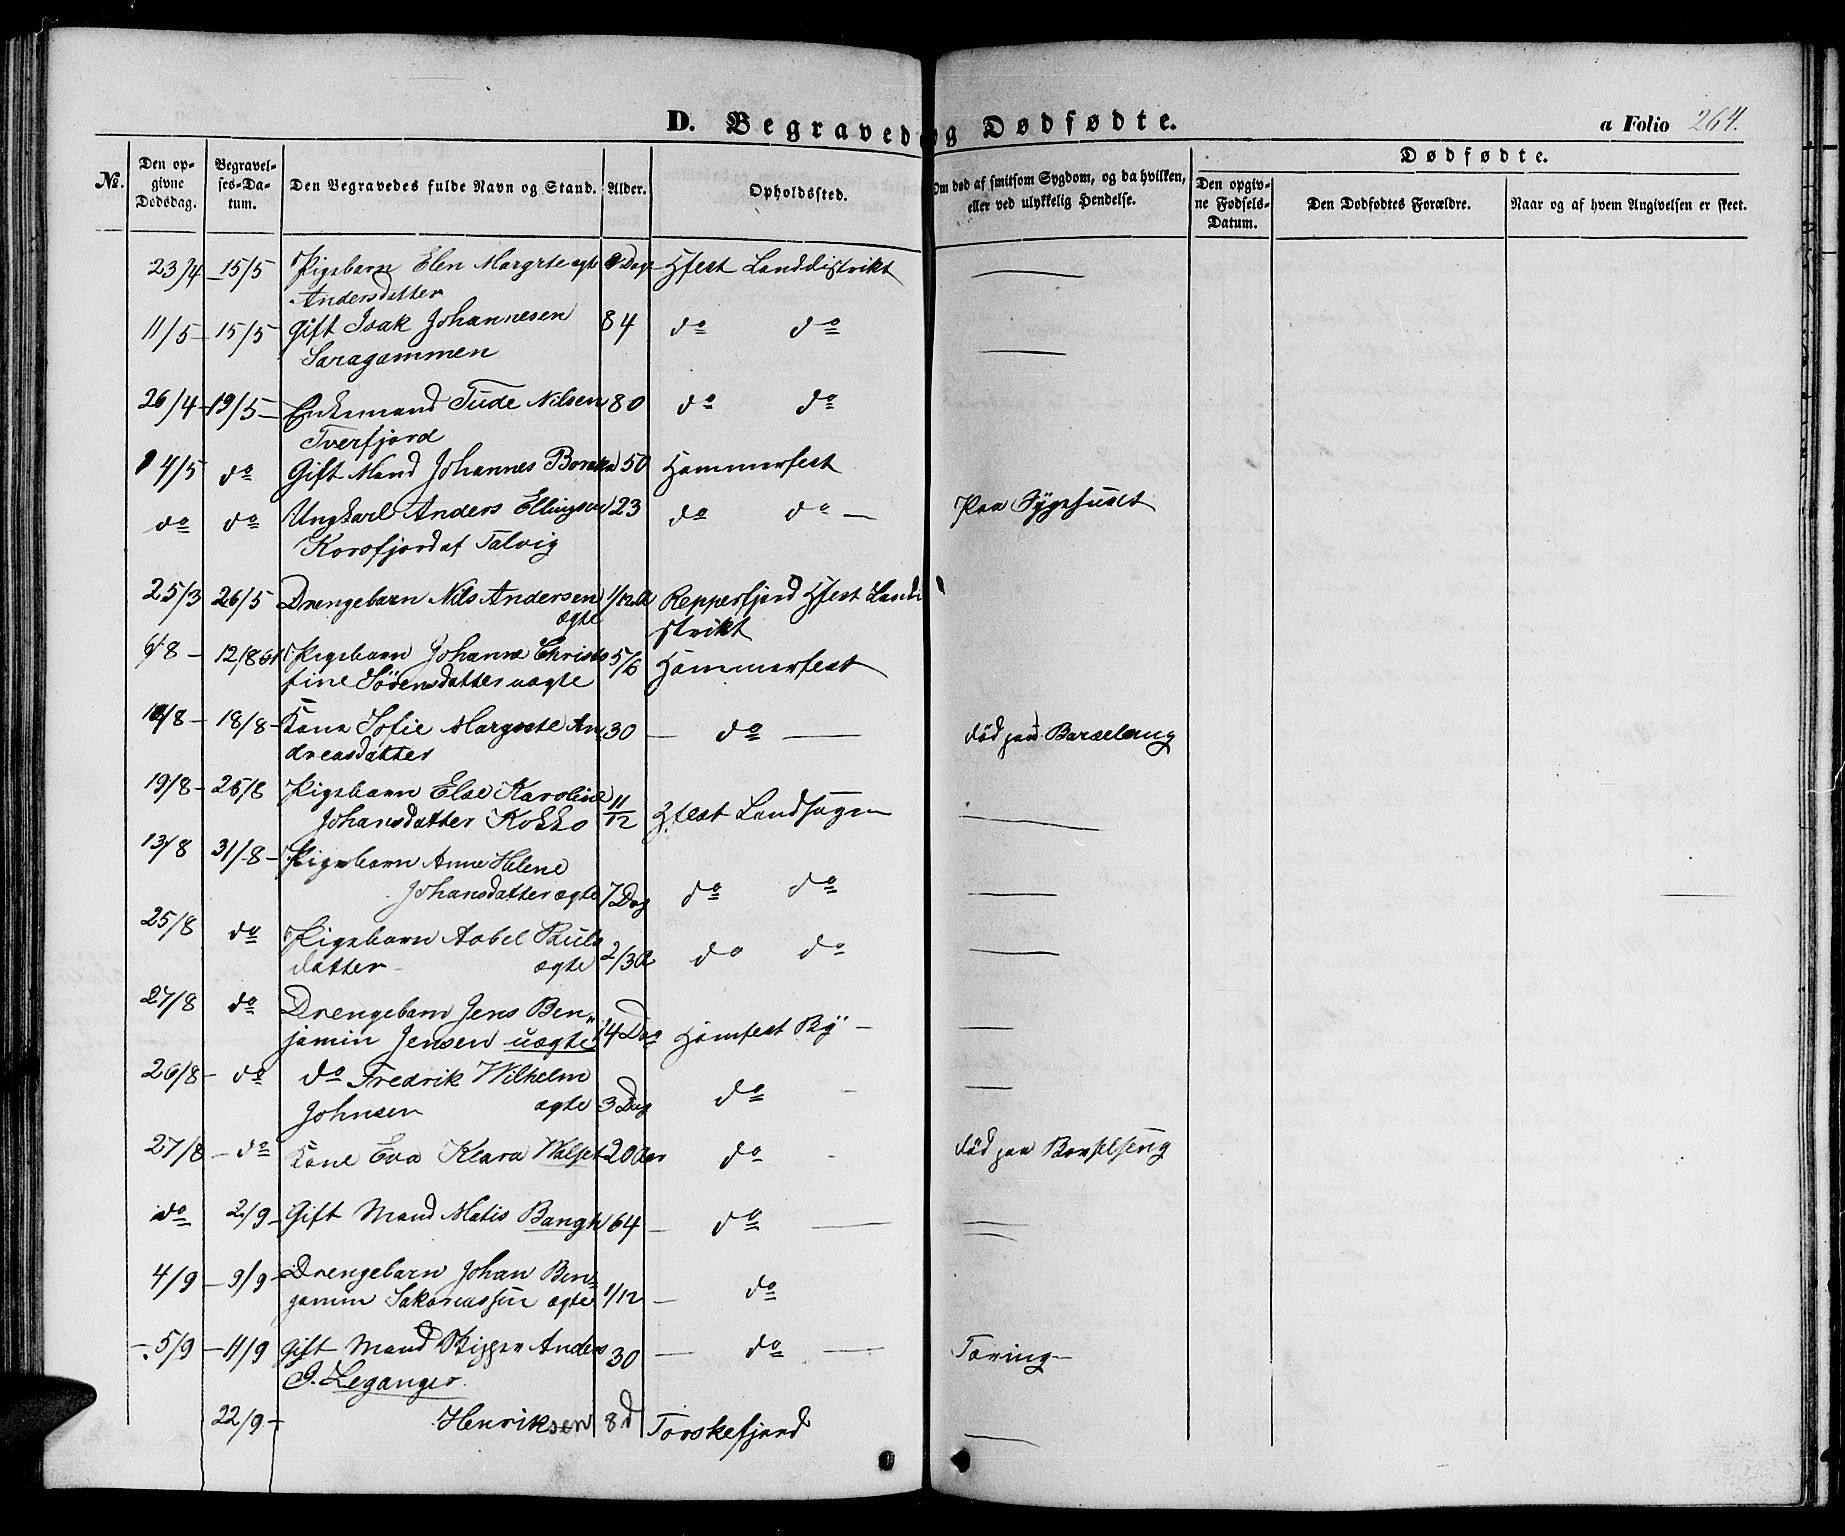 D. Begravede og Dødfødte.
a Folio 264.
No.
Den opgivne Dødsdag.
Begravelses-Datum.
Den Begravedes fulde Navn og Stand.
Alder.
Opholdssted.
Om død af smitsom Sygdom, og da hvilken, eller ved ulykkelig Hendelse.
Dødfødte.
Den opgivne Fødsels-Datum.
Den Dødfødtes Forældre.
Naar og af hvem Angivelsen er skeet.
23/4 15/5 Pigebarn Elen Margrte ægte Dage Hfest Landdistrikt
Andersdatter
11/5 15/5 Gift Isak Johannesen 84 do do
Saragammen
26/4 19/5 Enkemand Tude Nilsen 80 do do
Tverfjord
4/5 do Gift Mand Johannes 50 Hammerfest
do do Ungkarl Anders Ellingsen 23 do do Paa Sygehuset
Korsfjord af Talvig
25/3 26/5 Drengebarn Nils Andersen 1/12 A Repperfjord Hfest Landi
ægte strikt
6/8 12/8 Pigebarn Johanne Chris 5/6 Hammerfest
tine Sørensdatter uægte
18/8 Kone Sofie Margrete An 30 do død paa Barselseng
dreasdatter
19/8 25/8 Pigebarn Else Karoline 11/12 Hfest Landsogn
Johansdatter Kokko
13/8 31/8 Pigebarn Anne Helene
Johansdatter ægte 7 Dag do do
25/8 do Pigebarn Aabel Pauls
datter ægte 2/3 A do do
27/8 do Drengebarn Jens Ben
jamin Jensen uægte 14 Dag Hamfest By
26/8 do do Fredrik Wilhelm
Johnsen ægte 3 Dag do
27/8 do Kone Eva Klara Walset 20 Aar do død paa Barselseng
do 2/9 Gift Mand Matis Bangh 64 do
4/9 9/9 Drengebarn Johan Ben
jamin Sakariassen ægte 1/12 do
5/9 11/9 Gift Mand Anders 30 do Tæring
J. Leganger.
22/9 Henriksen 8 d Torskefjord